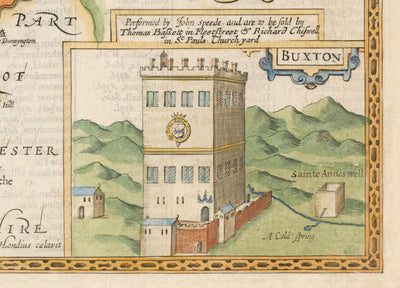 PART
Dunington
Performed by John Speede and are to be sold by
Thomas Bassett in Fleetstreet & Richard Chiswell
in St. Pauls Church yard
BUXTON
OF
Hill
ESTER
the
Sainte Annis Well
A Cold spring
IRE
Hondius cælavit